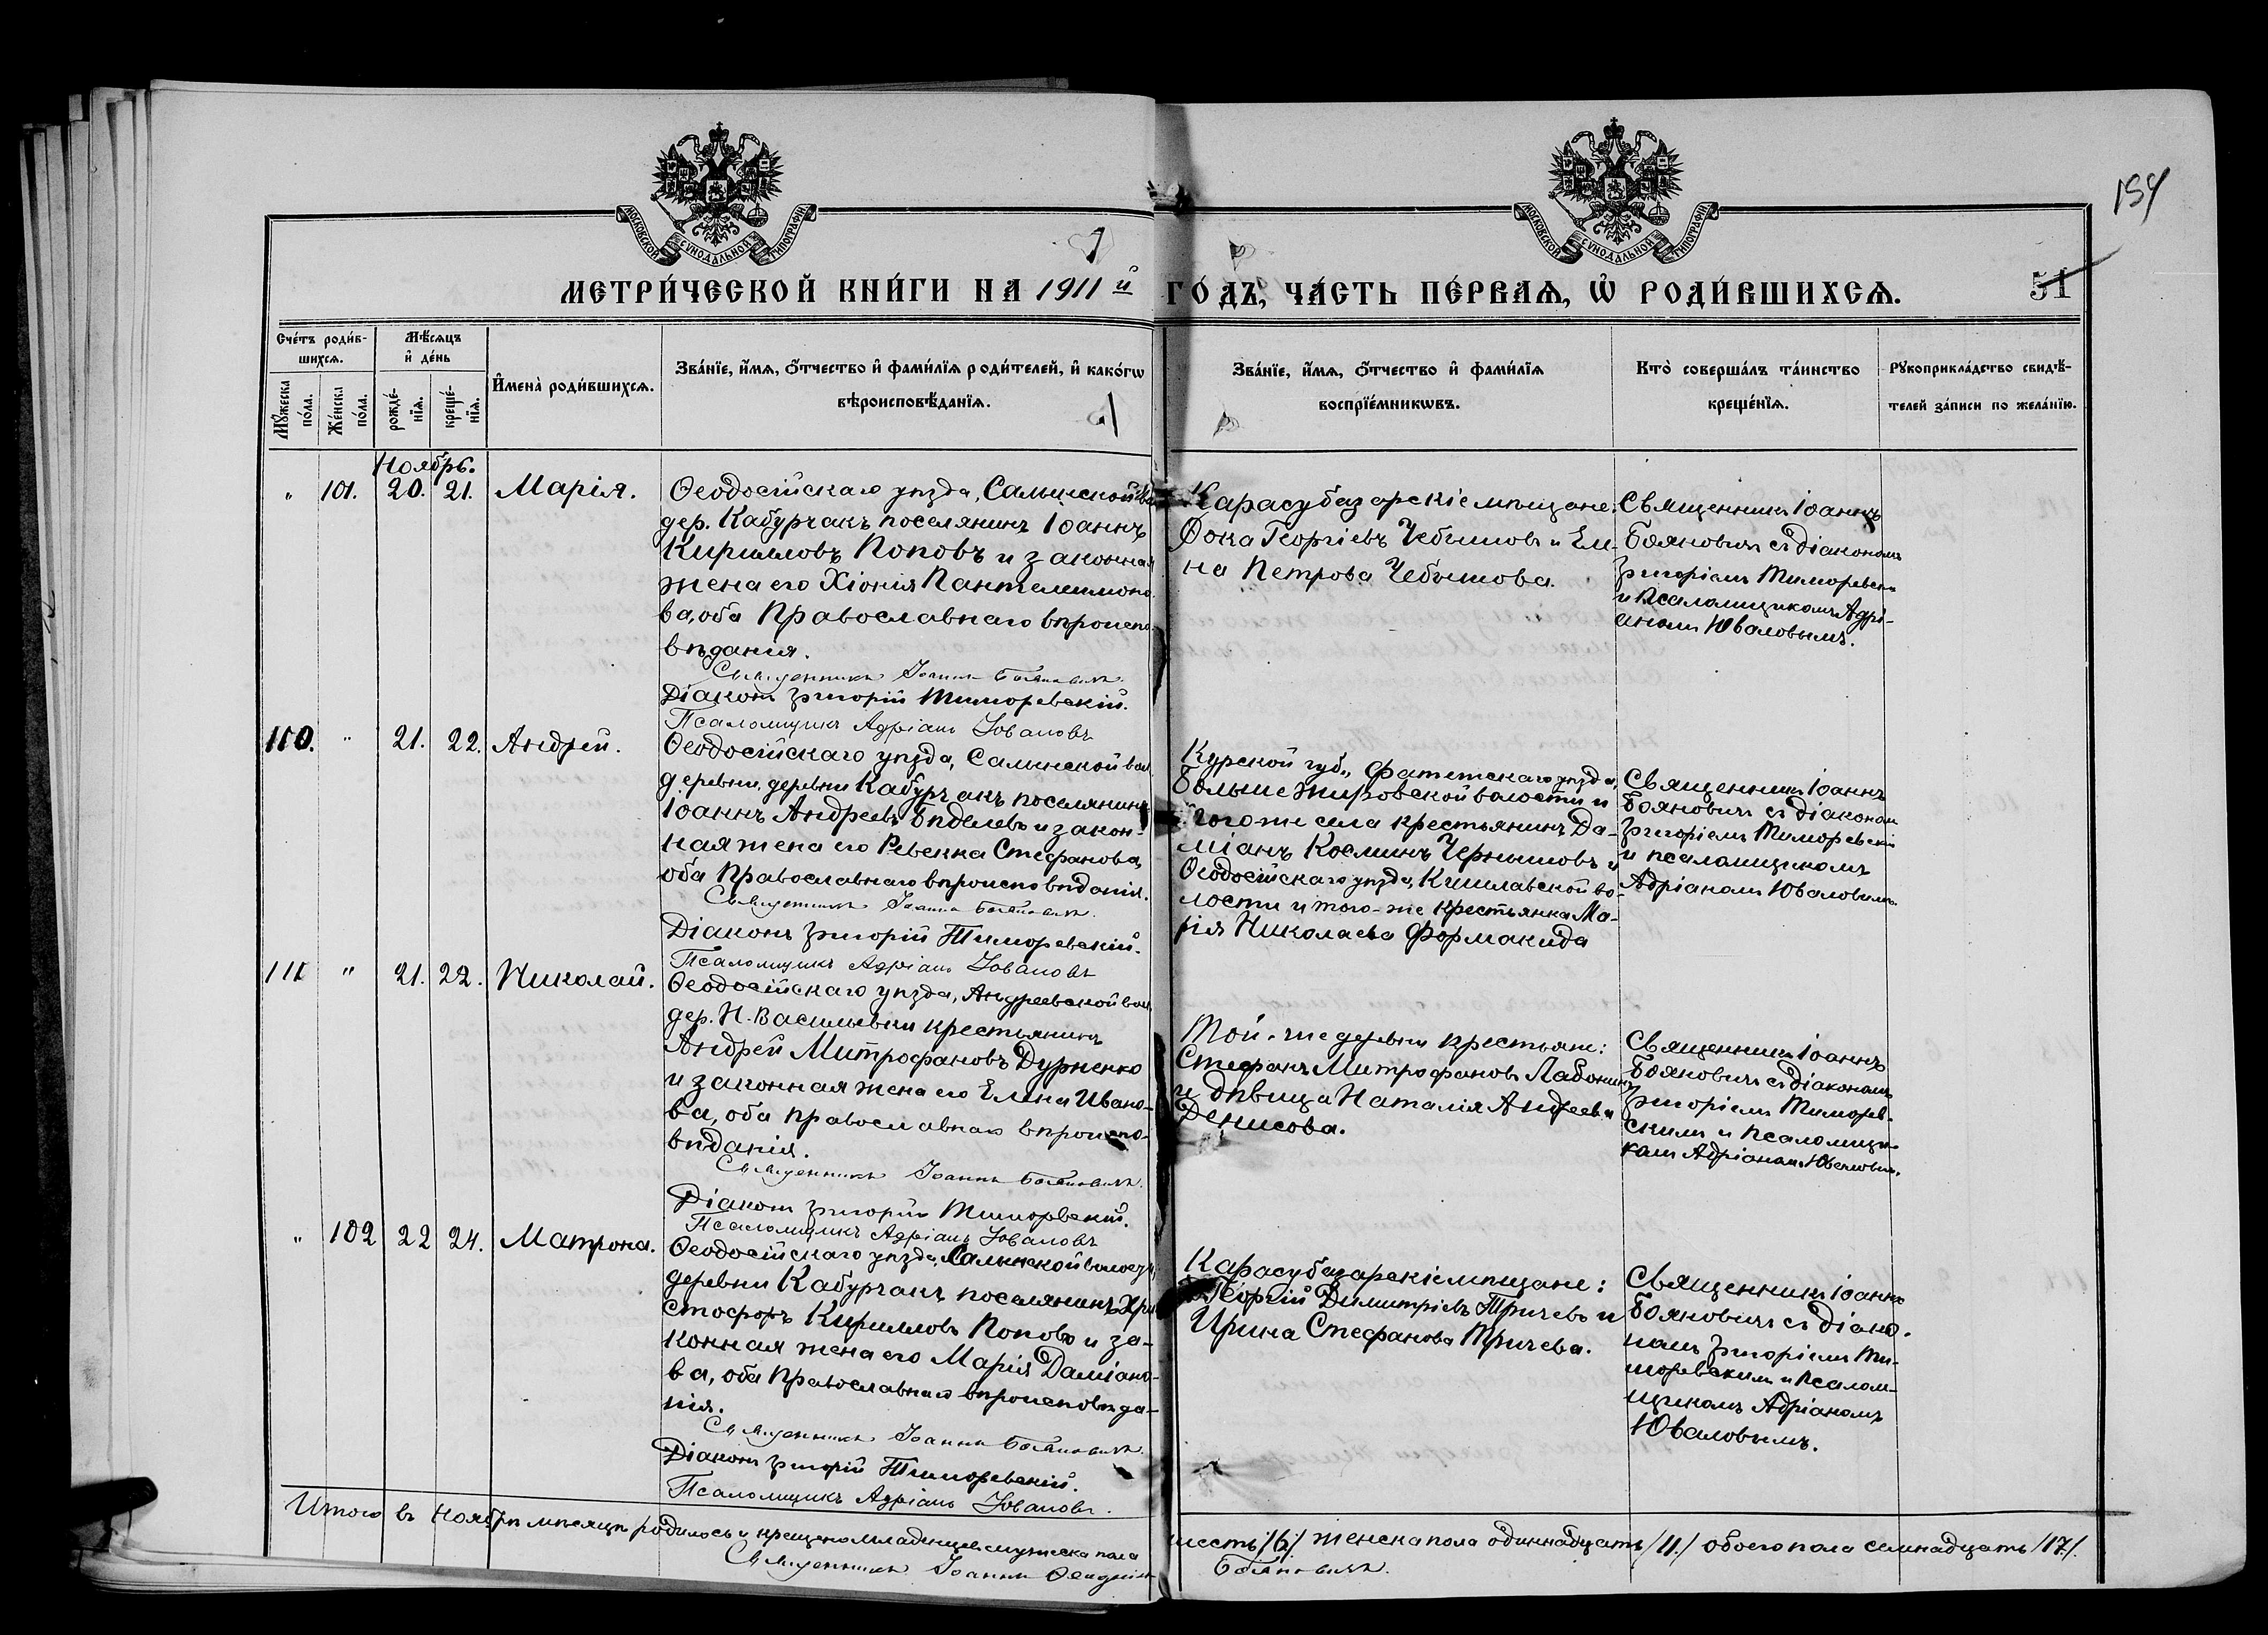 154
МОСКОВСКОЙ СѴНОДАЛЬНОЙ ТИПОГРАФІИ
МОСКОВСКОЙ СѴНОДАЛЬНОЙ ТИПОГРАФІИ
МЕТРИ́ЧЕСКОЙ КНИ́ГИ НА 1911й ГО́ДЪ, ЧА́СТЬ ПЕ́РВАѦ, Ѡ҆ РОДИ́ВШИХСѦ.
51
Сче́тъ роди́в-
шихсѧ.
Мꙋ́жеска
по́ла.
Же́нска
по́ла.
Мѣ́сѧцъ
и҆ де́нь
рожде́-
нїѧ.
креще́-
нїѧ.
И҆мена̀ роди́вшихсѧ.
Зва́нїе, и҆́мѧ, ѻ҆́тчество и҆ фами́лїѧ роди́телей, и҆ како́гѡ
вѣроисповѣ́данїѧ.
Зва́нїе, и҆́мѧ, ѻ҆́тчество и҆ фами́лїѧ
воспрїе́мникѡвъ.
Кто̀ соверша́лъ та́инство
креще́нїѧ.
Рꙋкоприкла́дство свидѣ́-
телей за́писи по жела́нїю.
Ноябрь.
" 101. 20. 21. Марія.
Ѳеодосійскаго уѣзда, Салынской во
дер. Кабурчакъ поселянинъ Іоаннъ
Кирилловъ Поповъ и законная
жена его Хіонія Пантелеимоно-
ва, оба Православнаго вѣроиспо-
вѣданія.
Священникъ Іоаннъ Бояновичъ.
Діаконъ Григорій Тиморевскій.
Псаломщикъ Адріанъ Юваловъ
Карасубазарскіе мѣщане:
Фока Георгіевъ Чебышовъ и Еле-
на Петрова Чебышова.
Священникъ Іоаннъ
Бояновичъ съ діакономъ
Григоріемъ Тиморевски
и Псаломщикомъ Адрі-
аномъ Юваловымъ.
110. " 21. 22. Андрей.
Ѳеодосійскаго уѣзда, Салынской вол
деревни, деревни Кабурчакъ поселянинъ
Іоаннъ Андреевъ Бѣделевъ и закон-
ная жена его Ревекка Стефанова,
оба Православнаго вѣроисповѣданія.
Священникъ Іоаннъ Бояновичъ.
Діаконъ Григорій Тиморевскій.
Псаломщикъ Адріанъ Юваловъ
Курской губ., Фатежскаго уѣзда,
Большежировской волости и
того-же села крестьянинъ Да-
міанъ Косминъ Чернышовъ и
Ѳеодосійскаго уѣзда, Кишлавской во-
лости и того-же крестьянка Ма-
рія Николаева Формакида
Священникъ Іоаннъ
Бояновичъ съ діакономъ
Григоріемъ Тиморевски
и псаломщикомъ
Адріаномъ Юваловымъ.
111 " 21. 22. Николай.
Ѳеодосійскаго уѣзда, Андреевской вол.
дер. Н. Васильевки крестьянинъ
Андрей Митрофановъ Дурненко
и законная жена его Елена Ивано-
ва, оба православнаго вѣроиспо-
вѣданія.
Священникъ Іоаннъ Бояновичъ.
Діаконъ Григорій Тиморевскій.
Псаломщикъ Адріанъ Юваловъ
Той-же деревни крестьяне:
Стефанъ Митрофановъ Лабонинъ
и дѣвица Наталія Андреева
Денисова.
Священникъ Іоаннъ
Бояновичъ съ діакономъ
Григоріемъ Тиморев-
скимъ и псаломщи-
комъ Адріаномъ Юваловым.
" 102 22 24. Матрона.
Ѳеодосійскаго уѣзда, Салынской волости,
деревни Кабурчакъ поселянинъ Хри
стофоръ Кирилловъ Поповъ и за-
конная жена его Марія Даміано-
ва, оба Православнаго вѣроисповѣда-
нія.
Священникъ Іоаннъ Бояновичъ.
Діаконъ Григорій Тиморевскій.
Псаломщикъ Адріанъ Юваловъ.
Карасубазарскіе мѣщане:
Георгій Димитріевъ Тричевъ и
Ирина Стефанова Тричева.
Священникъ Іоаннъ
Бояновичъ съ діако-
номъ Григоріемъ Ти-
моревскимъ и Псалом-
щикомъ Адріаномъ
Юваловымъ.
Итого въ Ноябрѣ мѣсяцѣ родилось и крещено младенцевъ мужеска пола шесть /6/ женска пола одиннадцать /11./ обоего пола семнадцать /17./.
Священникъ Іоаннъ Бояновичъ.